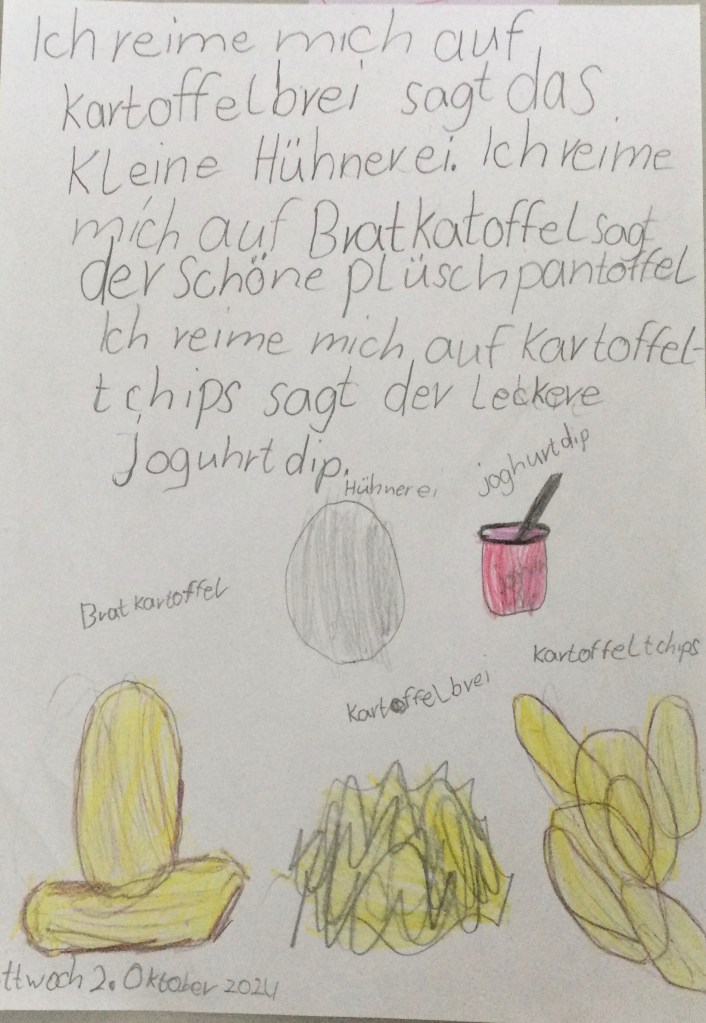 Ich reime mich auf
Kartoffelbrei sagt das
Kleine Hühnerei. Ich reime
mich auf Bratkatoffel sagt
der schöne plüschpantoffel
Ich reime mich auf Kartoffel-
tchips sagt der Leckere
Joguhrtdip.
Hühnerei
joghurtdip
Bratkartoffel
Kartoffeltchips
Kartoffelbrei
ttwoch 2. Oktober 2024